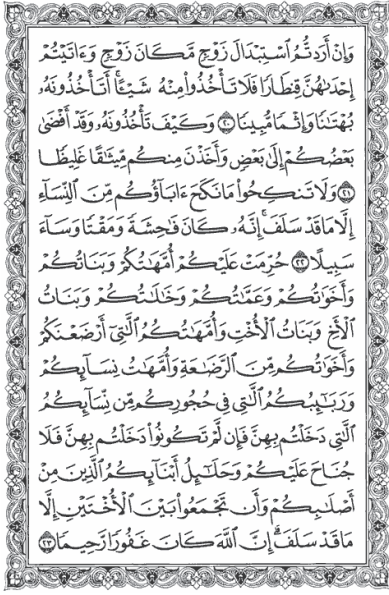 وَإِنْ أَرَدتُّمُ ٱسْتِبْدَالَ زَوْجٍ مَّكَانَ زَوْجٍ وَءَاتَيْتُمْ
إِحْدَىٰهُنَّ قِنطَارًا فَلَا تَأْخُذُوا۟ مِنْهُ شَيْـًٔا ۚ أَتَأْخُذُونَهُۥ
بُهْتَـٰنًا وَإِثْمًا مُّبِينًا ٢٠ وَكَيْفَ تَأْخُذُونَهُۥ وَقَدْ أَفْضَىٰ
بَعْضُكُمْ إِلَىٰ بَعْضٍ وَأَخَذْنَ مِنكُم مِّيثَـٰقًا غَلِيظًا
٢١ وَلَا تَنكِحُوا۟ مَا نَكَحَ ءَابَآؤُكُم مِّنَ ٱلنِّسَآءِ
إِلَّا مَا قَدْ سَلَفَ ۚ إِنَّهُۥ كَانَ فَـٰحِشَةً وَمَقْتًا وَسَآءَ
سَبِيلًا ٢٢ حُرِّمَتْ عَلَيْكُمْ أُمَّهَـٰتُكُمْ وَبَنَاتُكُمْ
وَأَخَوَٰتُكُمْ وَعَمَّـٰتُكُمْ وَخَـٰلَـٰتُكُمْ وَبَنَاتُ
ٱلْأَخِ وَبَنَاتُ ٱلْأُخْتِ وَأُمَّهَـٰتُكُمُ ٱلَّـٰتِىٓ أَرْضَعْنَكُمْ
وَأَخَوَٰتُكُم مِّنَ ٱلرَّضَـٰعَةِ وَأُمَّهَـٰتُ نِسَآئِكُمْ
وَرَبَـٰٓئِبُكُمُ ٱلَّـٰتِى فِى حُجُورِكُم مِّن نِّسَآئِكُمُ
ٱلَّـٰتِى دَخَلْتُم بِهِنَّ فَإِن لَّمْ تَكُونُوا۟ دَخَلْتُم بِهِنَّ فَلَا
جُنَاحَ عَلَيْكُمْ وَحَلَـٰٓئِلُ أَبْنَآئِكُمُ ٱلَّذِينَ مِنْ
أَصْلَـٰبِكُمْ وَأَن تَجْمَعُوا۟ بَيْنَ ٱلْأُخْتَيْنِ إِلَّا
مَا قَدْ سَلَفَ ۗ إِنَّ ٱللَّهَ كَانَ غَفُورًا رَّحِيمًا ٢٣